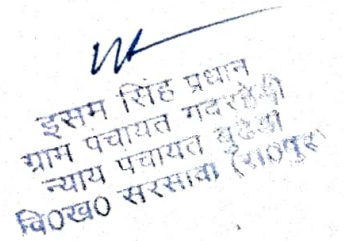 इसम सिंह प्रधान
ग्राम पंचायत गदरहेडी
न्याय पंचायत बुढेडा
वि0ख0 सरसावा (स0पुर)